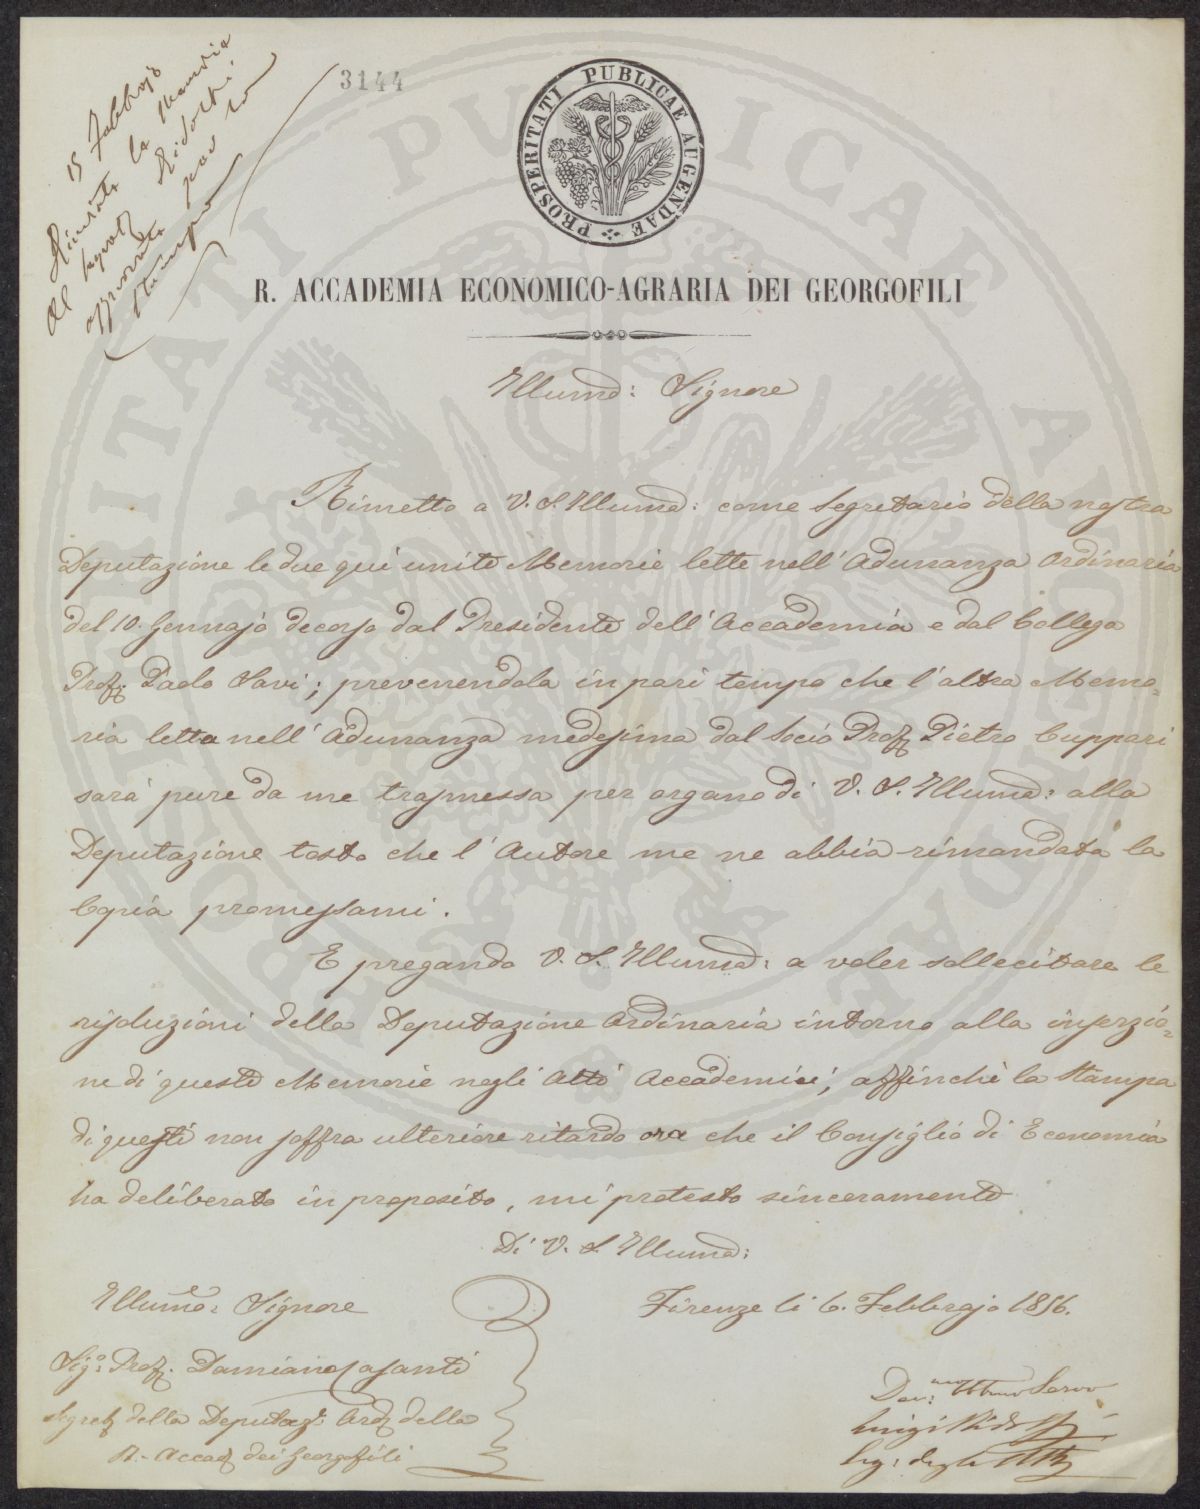 15 Febbrajo
Rinviata la Memoria
al Segret. Ridolfi
approvata per la
stampa
3144
PROSPERITATI PUBLICAE AUGENDAE
R. ACCADEMIA ECONOMICO-AGRARIA DEI GEORGOFILI
Illumo: Signore
Rimetto a V. S. Illuma: come Segretario della nostra
Deputazione le due qui unite Memorie lette nell' Adunanza Ordinaria
del 10. Gennajo decorso dal Presidente dell' Accademia e dal Collega
Prof. Paolo Savi; prevenendola in pari tempo che l' altra Memo=
ria letta nell' Adunanza medesima dal Socio Prof. Pietro Cuppari
sarà pure da me trasmessa per organo di V. S. Illuma: alla
Deputazione tosto che l' Autore me ne abbia rimandata la
Copia promessami.
E pregando V. S. Illuma: a voler sollecitare le
risoluzioni della Deputazione Ordinaria intorno alla inserzio=
ne di queste Memorie negli Atti Accademici, affinchè la Stampa
di questi non soffra ulteriore ritardo ora che il Consiglio di Economia
ha deliberato in proposito, mi protesto sinceramente
Di V. S. Illuma:
Illumo: Signore
Sigo: Prof. Damiano Casanti
Segret. della Deputaz. Ord. della
R. Accad. dei Georgofili
Firenze li 6. Febbrajo 1856.
Dev:mo Obmo Servo
Luigi Ridolfi
Seg: degli Atti